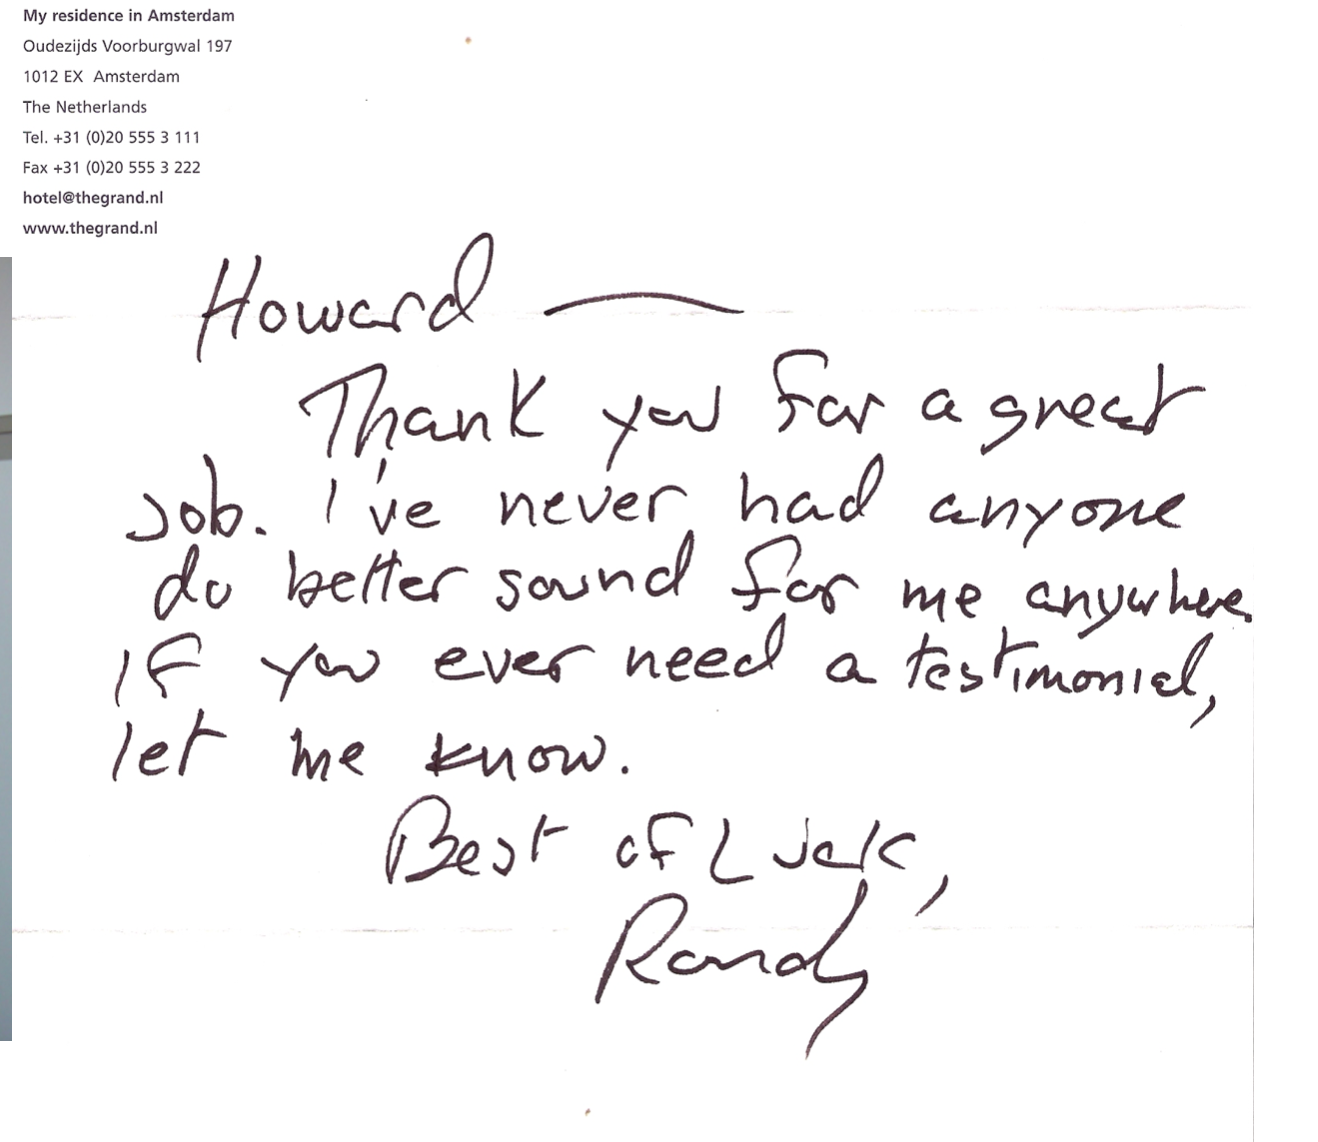 My residence in Amsterdam
Oudezijds Voorburgwal 197
1012 EX Amsterdam
The Netherlands
Tel. +31 (0)20 555 3 111
Fax +31 (0)20 555 3 222
hotel@thegrand.nl
www.thegrand.nl
Howard —
Thank you for a great
job. I've never had anyone
do better sound for me anywhere.
If you ever need a testimonial,
let me know.
Best of Luck,
Randy